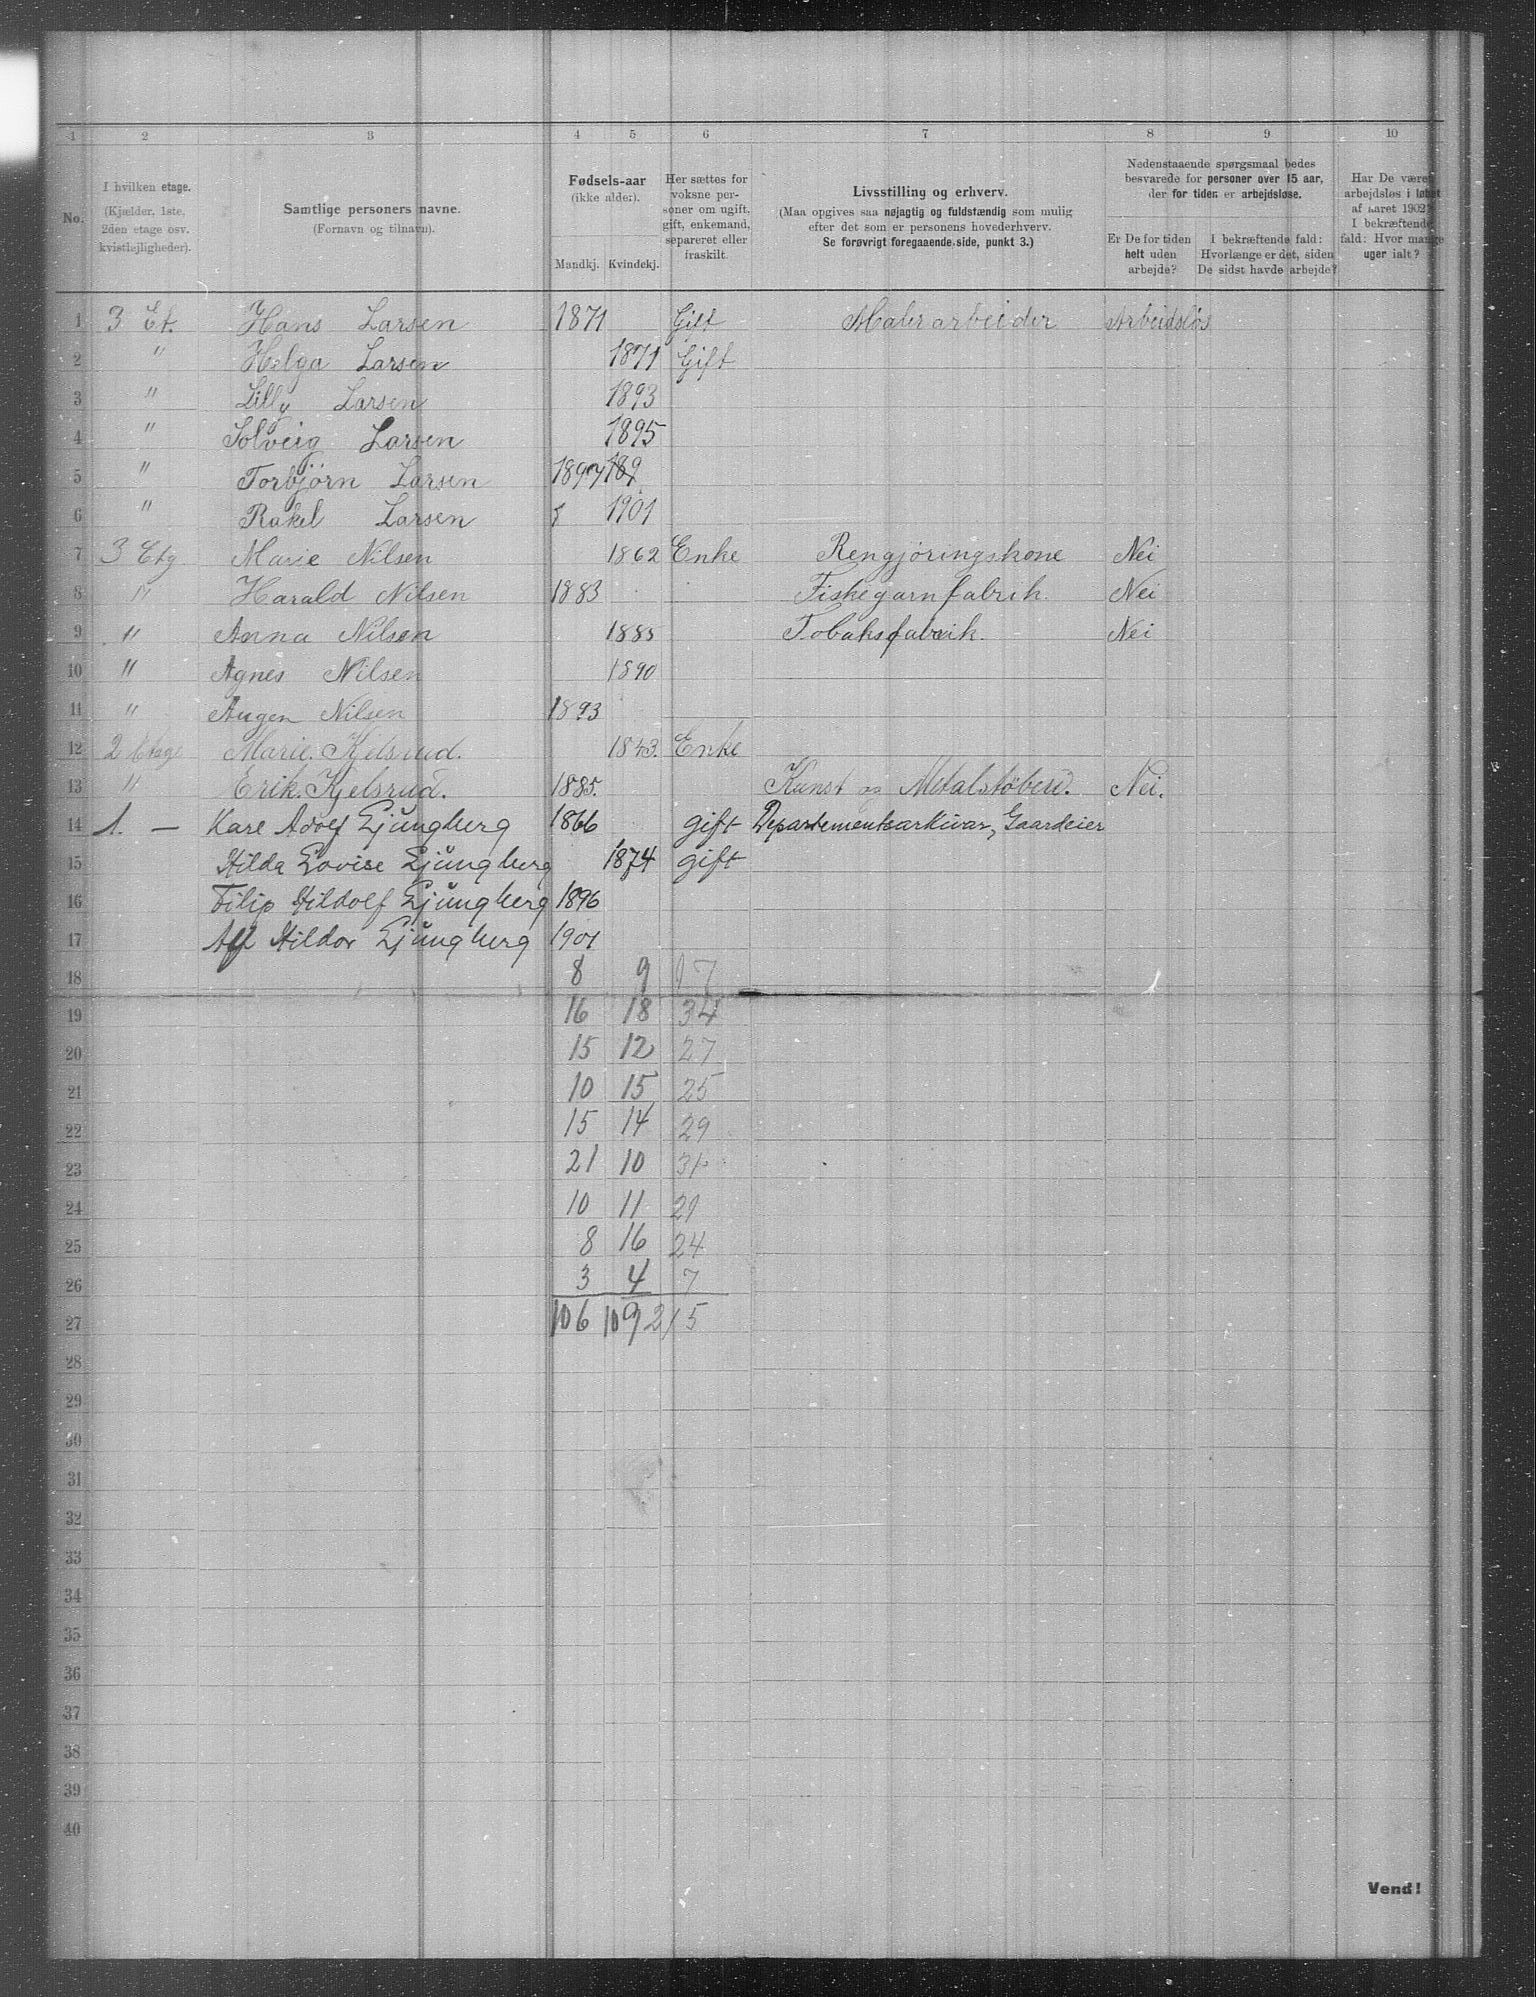 1 2 3 4 5 6 7 8 9 10
No.
I hvilken etage.
(Kjælder, 1ste,
2den etage osv.
kvistlejligheder).
Samtlige personers navne.
(Fornavn og tilnavn).
Fødsels-aar
(ikke alder).
Mandkj. Kvindekj.
Her sættes for
voksne per-
soner om ugift,
gift, enkemand,
separeret eller
fraskilt.
Livsstilling og erhverv.
(Maa opgives saa nøjagtig og fuldstændig som mulig
efter det som er personens hovederhverv.
Se forøvrigt foregaaende side, punkt 3.)
Nedenstaaende spørgsmaal bedes
besvarede for personer over 15 aar,
der for tiden er arbejdsløse.
Er De for tiden
helt uden
arbejde?
I bekræftende fald:
Hvorlænge er det, siden
De sidst havde arbejde?
Har De været
arbejdsløs i løbet
af aaret 1902?
I bekræftende
fald: Hvor mange
uger ialt?
1 3 Et. Hans Larsen 1871 Gift Malerarbeider Arbeidsløs
2 " Helga Larsen 1871 Gift
3 " Lilly Larsen 1893
4 " Solveig Larsen 1895
5 " Torbjørn Larsen 1897 189
6 " Rakel Larsen 1901
7 3 Etg Marie Nilsen 1862 Enke Rengjøringskone Nei
8 " Harald Nilsen 1883 Fiskegarnfabrik. Nei
9 " Anna Nilsen 1885 Tobaksfabrik. Nei
10 " Agnes Nilsen 1890
11 " Augen Nilsen 1893
12 2 Etage Marie. Kjelsrud. 1843. Enke
13 " Erik. Kjelsrud. 1885. Kunst og Metalstøberi. Nei.
14 1. — Karl Adolf Ljungberg 1866 gift Departementsarkivar, Gaardeier
15 Hilda Lovise Ljungberg 1874 gift
16 Filip Hildolf Ljungberg 1896
17 Alf Hildor Ljungberg 1901
18 8 9 17
19 16 18 34
20 15 12 27
21 10 15 25
22 15 14 29
23 21 10 31
24 10 11 21
25 8 16 24
26 3 4 7
27 106 109 215
28
29
30
31
32
33
34
35
36
37
38
39
40
Vend!